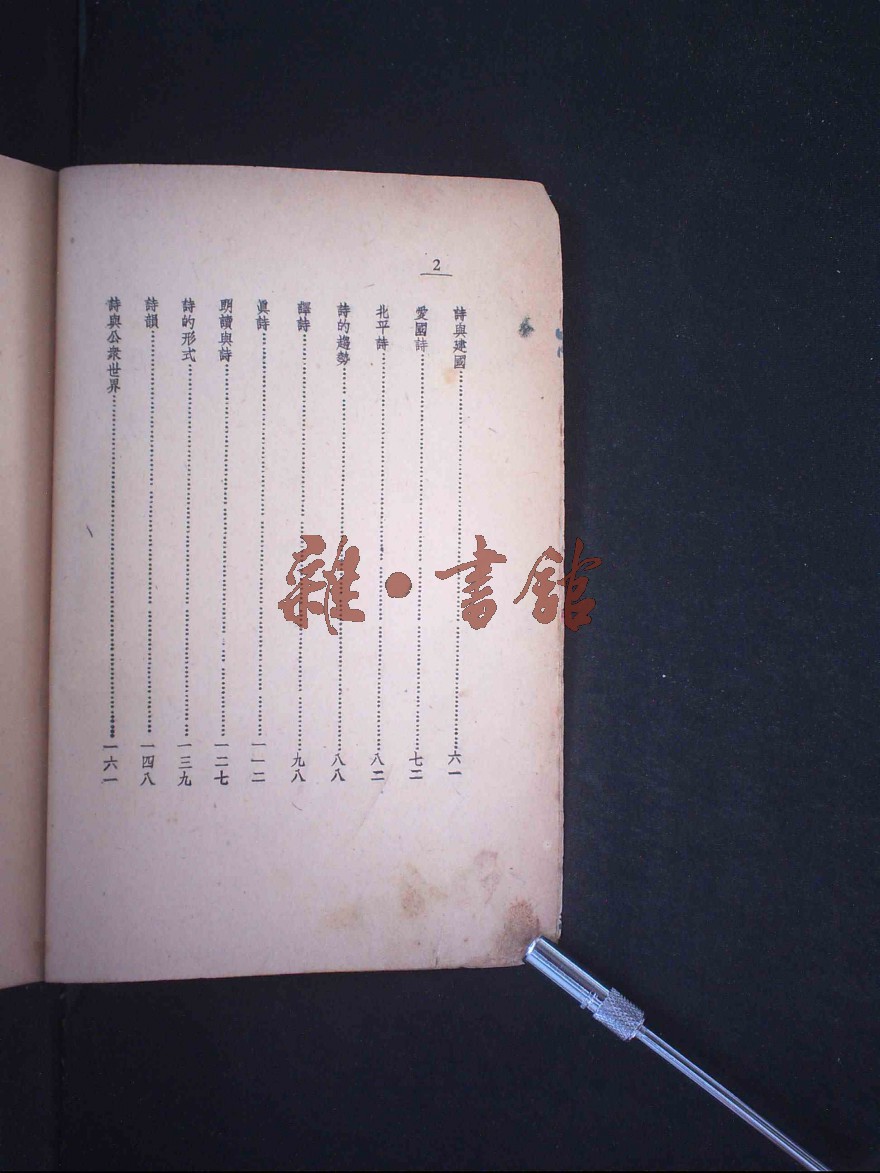 2
詩與建國……六一
愛國詩……七二
北平詩……八二
詩的趨勢……八八
譯詩……九八
眞詩……一一二
朗讀與詩……一二七
詩的形式……一三九
詩韻……一四八
詩與公衆世界……一六一
雜·書館